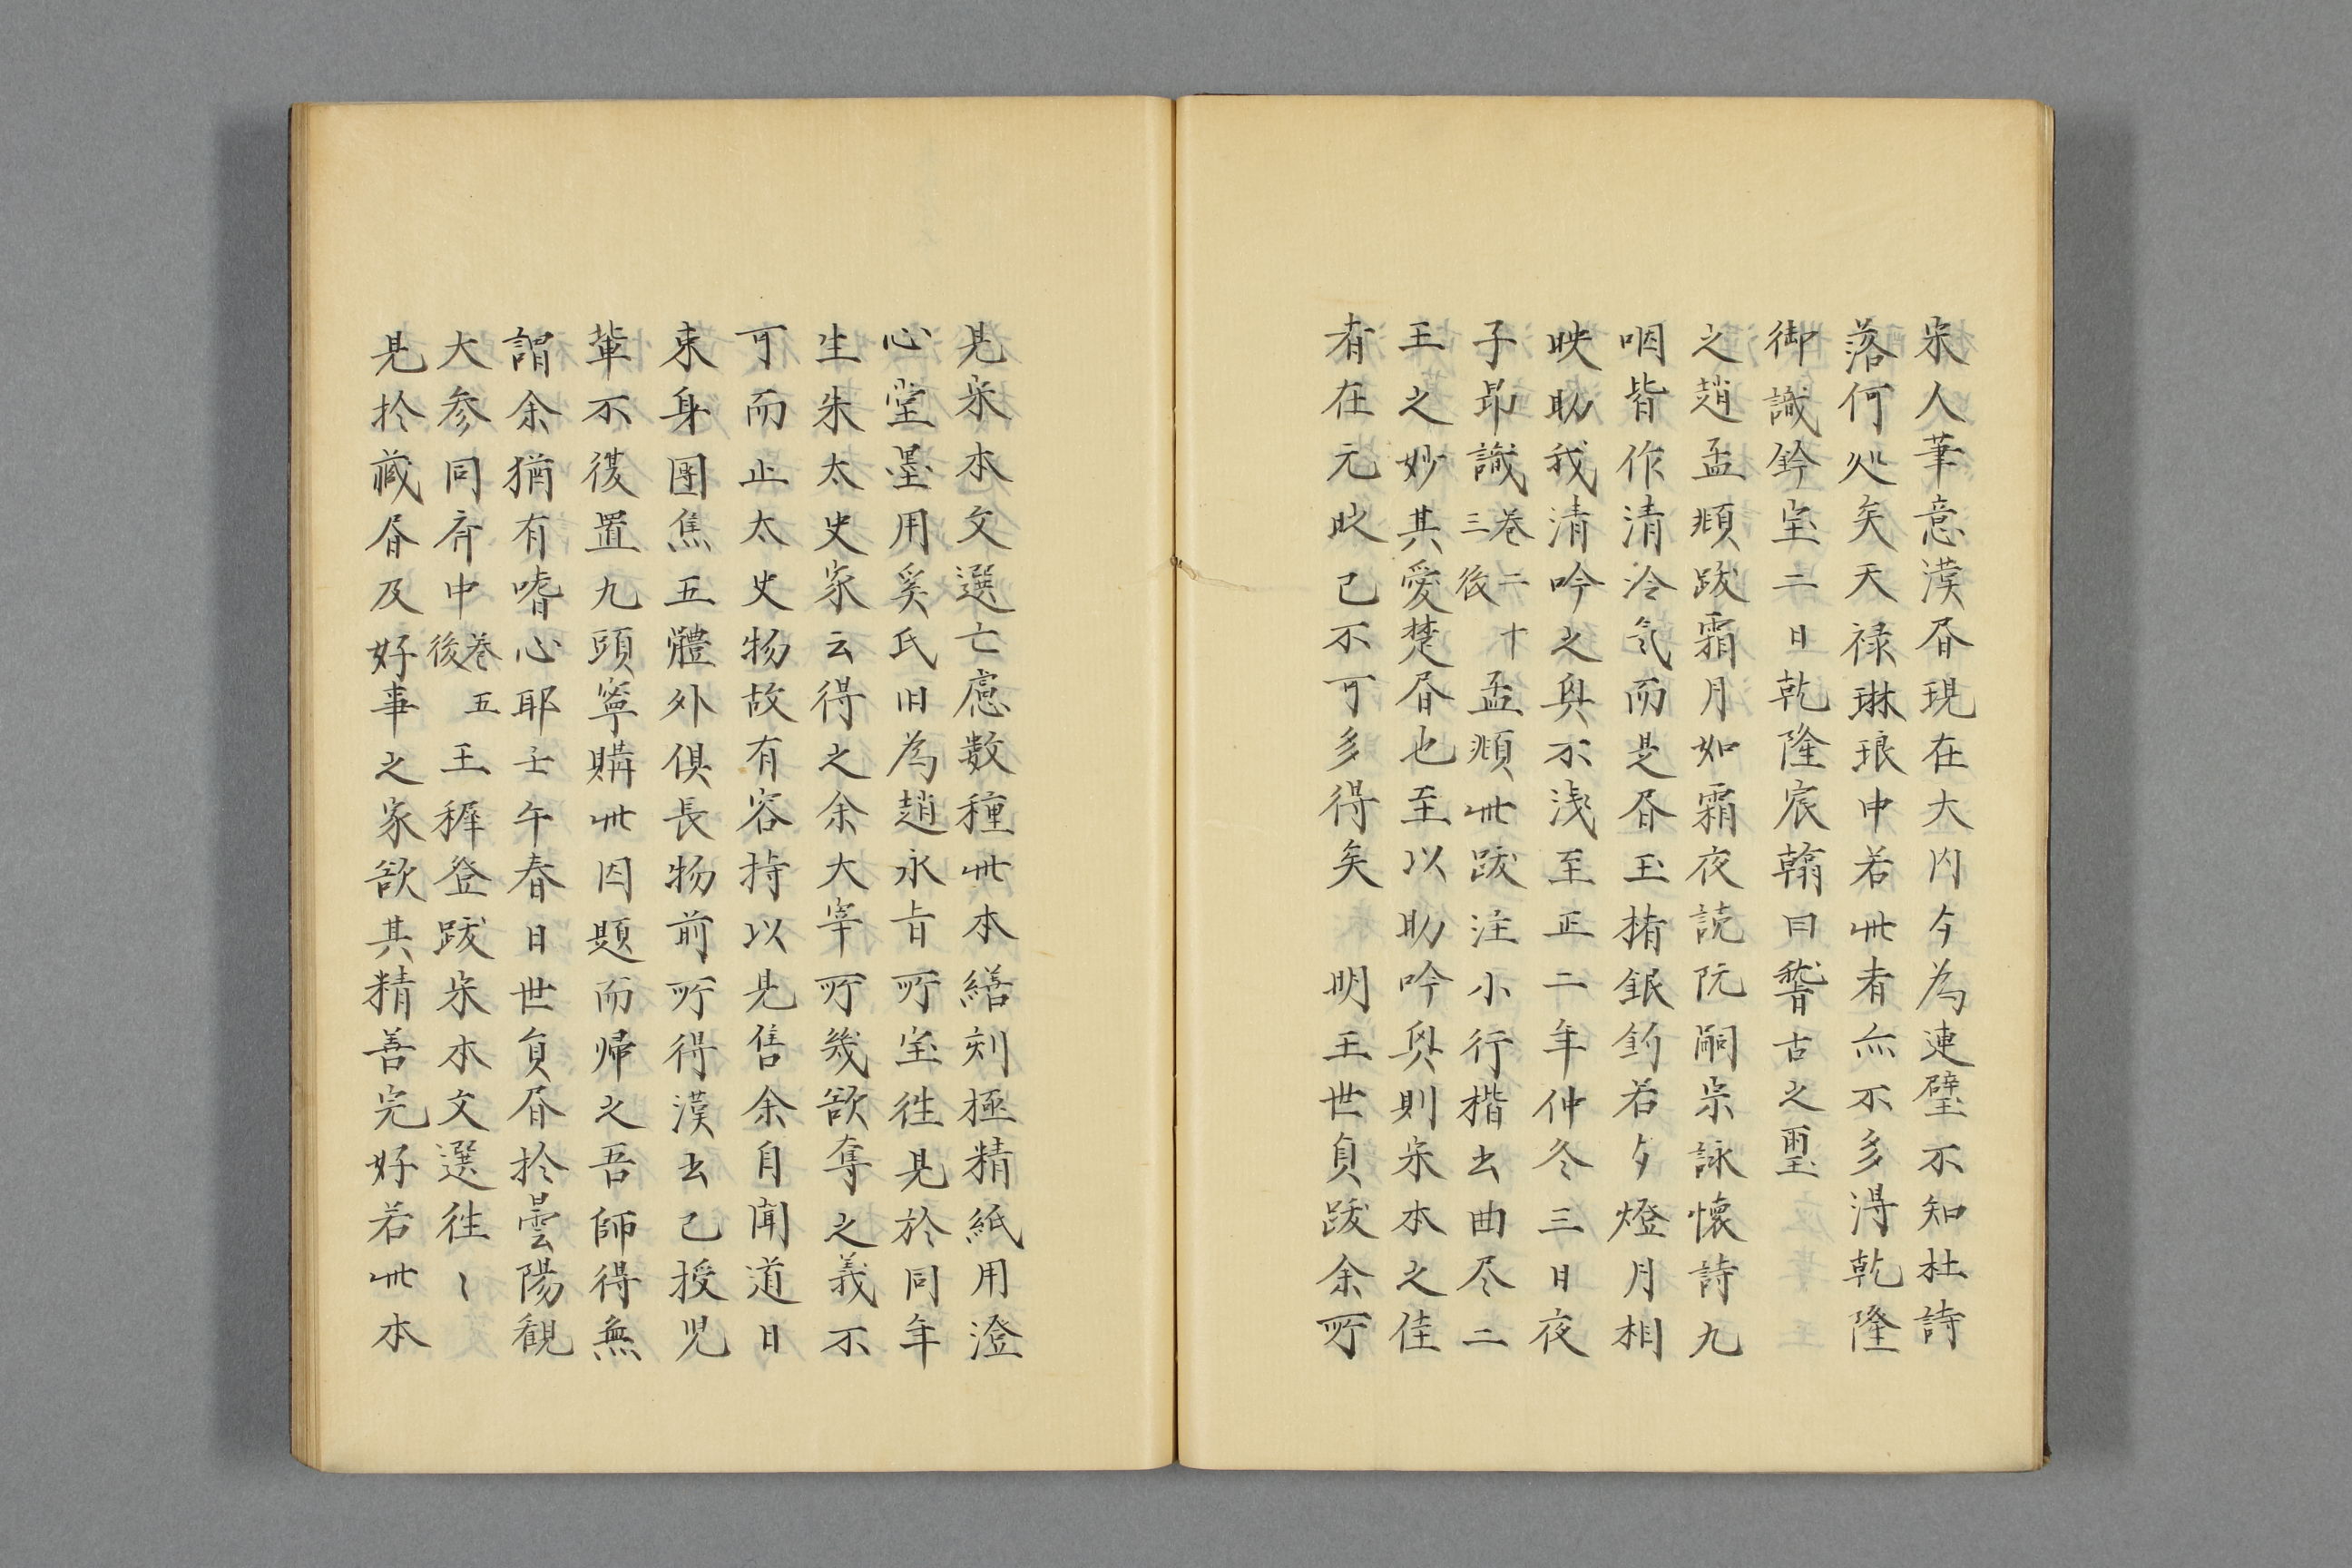 宋人筆意漢昏現在大内今為連璧不知杜詩
落何処矣天禄琳琅中若此者亦不多得乾隆
御識鈐宝二曰乾隆宸翰曰稽古之璽
之趙孟頫跋霜月如霜夜読阮嗣宗詠懐詩九
咽皆作清冷気而是昏玉楮銀鉤若与燈月相
映助我清吟之興不浅至正二年仲冬三日夜
子昂識巻二十三後孟頫此跋注小行楷去曲尽二
王之妙其愛楚昏也至以助吟興則宋本之佳
者在元時已不可多得矣　明王世貞跋余所
見宋本文選亡慮数種此本繕刻極精紙用澄
心堂墨用奚氏旧為趙永旨所宝往見於同年
生朱太史家云得之余大宰所幾欲奪之義不
可而止太史物故有客持以見售余自聞道日
束身団焦五體外倶長物前所得漢去已授児
輩不復置九頭寧購此因題而帰之吾師得無
謂余猶有嗜心耶壬午春日世貞昏於曇陽観
大参同斉中巻五後王穉登跋宋本文選往〻
見於蔵昏及好事之家欲其精善完好若此本